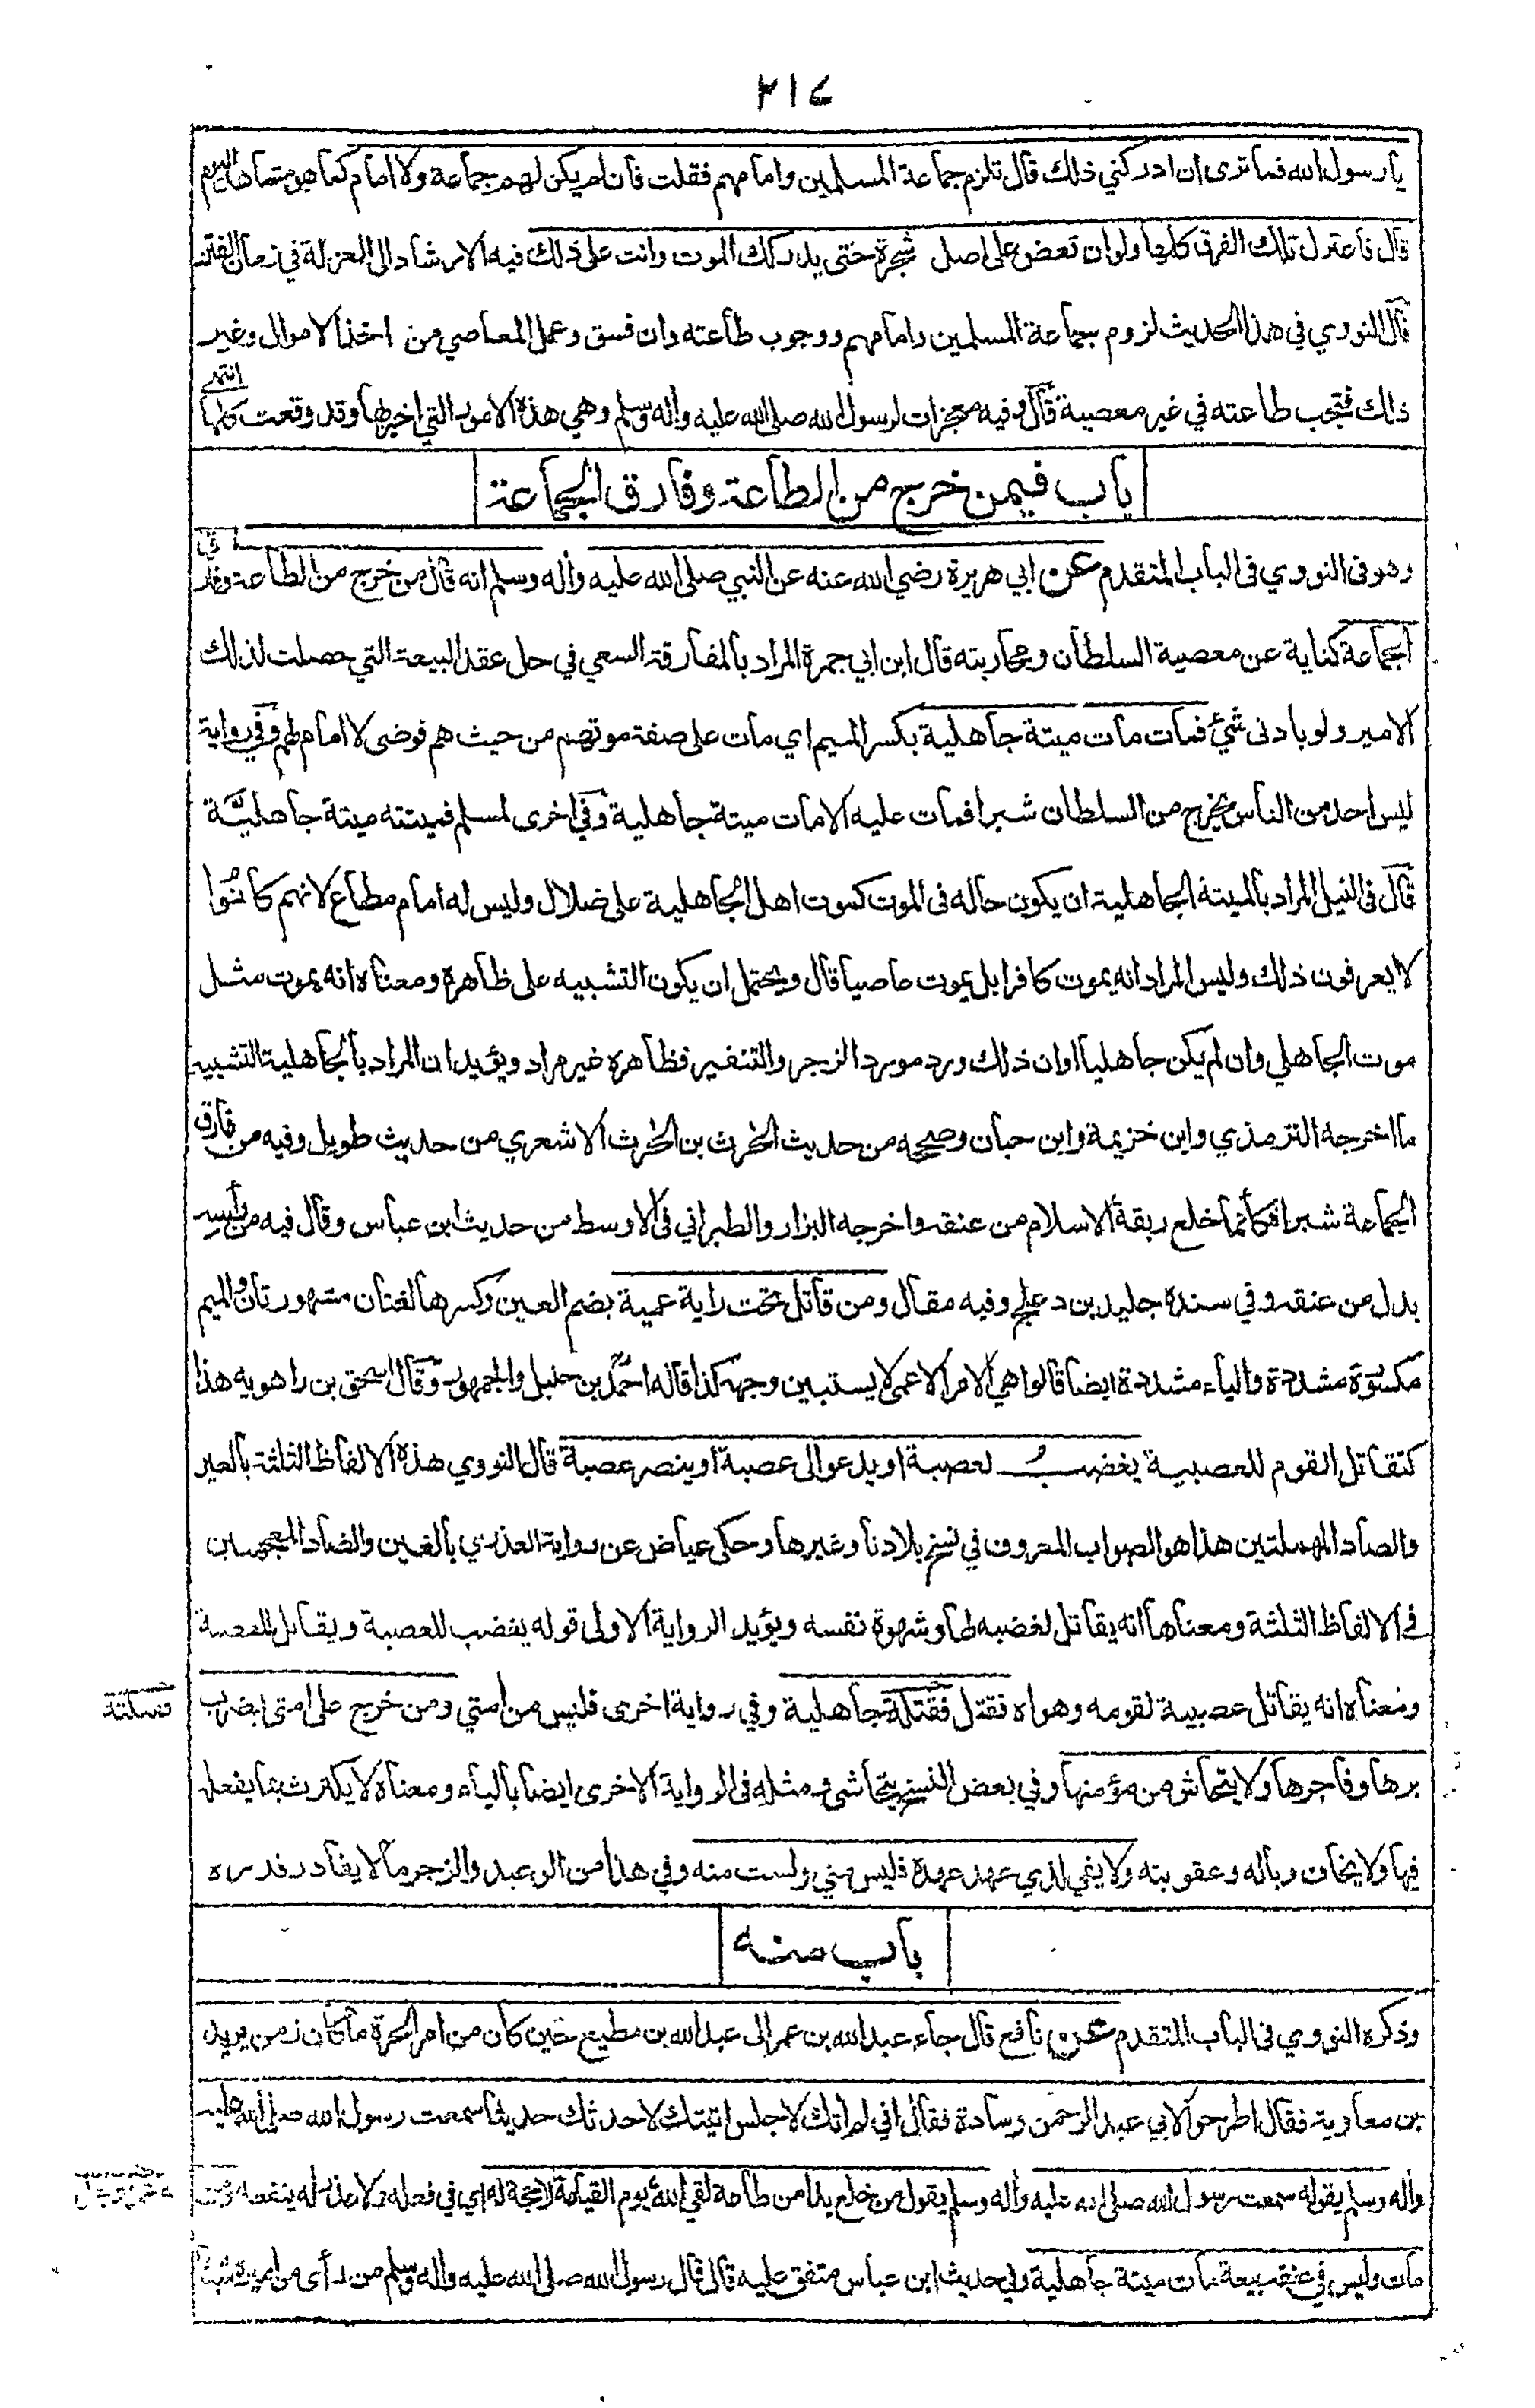 ٣١٤
يا رسول الله فما ترى ان ادركني ذلك قال تلزم جماعة المسلمين وامامهم فقلت فان لم يكن لهم جماعة ولا امام كما هو متماهل اليوم
قال فاعتزل تلك الفرق كلها ولو ان تعض على اصل شجرة حتى يدركك الموت وانت على ذلك فيه الارشاد الى العزلة في زمان الفتن
قال النووي في هذا الحديث لزوم جماعة المسلمين وامامهم ووجوب طاعته وان فسق وعمل المعاصي من اخذ الاموال وغير
ذلك فتجب طاعته في غير معصية قال وفيه معجزات لرسول الله صلى الله عليه واله وسلم وهي هذه الامور التي اخبر بها وقد وقعت كلها انتهى
باب فيمن خرج من الطاعة وفارق الجماعة
وهو في النووي في الباب المتقدم عن ابي هريرة رضي الله عنه عن النبي صلى الله عليه واله وسلم انه قال من خرج من الطاعة وفارق
الجماعة كناية عن معصية السلطان ومحاربته قال ابن ابي جمرة المراد بالمفارقة السعي في حل عقد البيعة التي حصلت لذلك
الامير ولو بادنى شئ فمات مات ميتة جاهلية بكسر الميم اي مات على صفة موتهم من حيث هم فوضى لا امام لهم وفي رواية
ليس احد من الناس يخرج من السلطان شبرا فمات عليه الا مات ميتة جاهلية وفي اخرى لمسلم فميتته ميتة جاهليّة
قال في النيل المراد بالميتة الجاهلية ان يكون حاله في الموت كموت اهل الجاهلية على ضلال وليس له امام مطاع لانهم كانوا
لا يعرفون ذلك وليس المراد انه يموت كافرا بل يموت عاصيا قال ويحتمل ان يكون التشبيه على ظاهره ومعناه انه يموت مثل
موت الجاهلي وان لم يكن جاهليا او ان ذلك ورد مورد الزجر والتنفير فظاهره غير مراد ويؤيد ان المراد بالجاهلية التشبيه
ما اخرجه الترمذي وابن خزيمة وابن حبان وصححه من حديث الحرث بن الحرث الاشعري من حديث طويل وفيه من فارق
الجماعة شبرا فكأنما خلع ربقة الاسلام من عنقه واخرجه البزار والطبراني في الاوسط من حديث ابن عباس وقال فيه من رأسه
بدل من عنقه وفي سنده جليد بن دعلج وفيه مقال ومن قاتل تحت راية عمية بضم العين وكسرها لغتان مشهورتان والميم
مكسورة مشددة والياء مشددة ايضا قالوا هي الامر الاعمى لا يستبين وجهه كذا قاله احمد بن حنبل والجمهور وقال اسحق بن راهويه هذا
كتقاتل القوم للعصبية يغضب لعصبة او يدعو الى عصبة او ينصر عصبة قال النووي هذه الالفاظ الثلثة بالعين
والصاد المهملتين هذا هو الصواب المعروف في نسخ بلادنا وغيرها وحكى عياض عن رواية العذري بالغين والضاد المعجمتين
في الالفاظ الثلثة ومعناها انه يقاتل لغضبه لها وشهوة نفسه ويؤيد الرواية الاولى قوله يغضب للعصبة ويقاتل للعصبة
ومعناه انه يقاتل عصبية لقومه وهواه فقتل فقتلة جاهلية وفي رواية اخرى فليس من امتي ومن خرج على امتي يضرب
برها وفاجرها ولا يتحاش من مؤمنها وفي بعض النسخ يتحاشى ومثله في الرواية الاخرى ايضا بالياء ومعناه لا يكترث بما يفعله
فيها ولا يخاف وباله وعقوبته ولا يفي لذي عهد عهده فليس مني ولست منه وفي هذا من الوعيد والزجر ما لا يقادر قدره
باب منه
وذكره النووي في الباب المتقدم عن نافع قال جاء عبد الله بن عمر الى عبد الله بن مطيع حين كان من امر الحرة ما كان زمن يزيد
بن معاوية فقال اطرحوا لابي عبد الرحمن وسادة فقال اني لم اتك لاجلس اتيتك لاحدثك حديثا سمعت رسول الله صلى الله عليه
واله وسلم يقوله سمعت رسول الله صلى الله عليه واله وسلم يقول من خلع يدا من طاعة لقي الله يوم القيامة لا حجة له اي في فعله ولا عذر له ينفعه ومن
مات وليس في عنقه بيعة مات ميتة جاهلية وفي حديث ابن عباس متفق عليه قال قال رسول الله صلى الله عليه واله وسلم من رأى من اميره شيئا